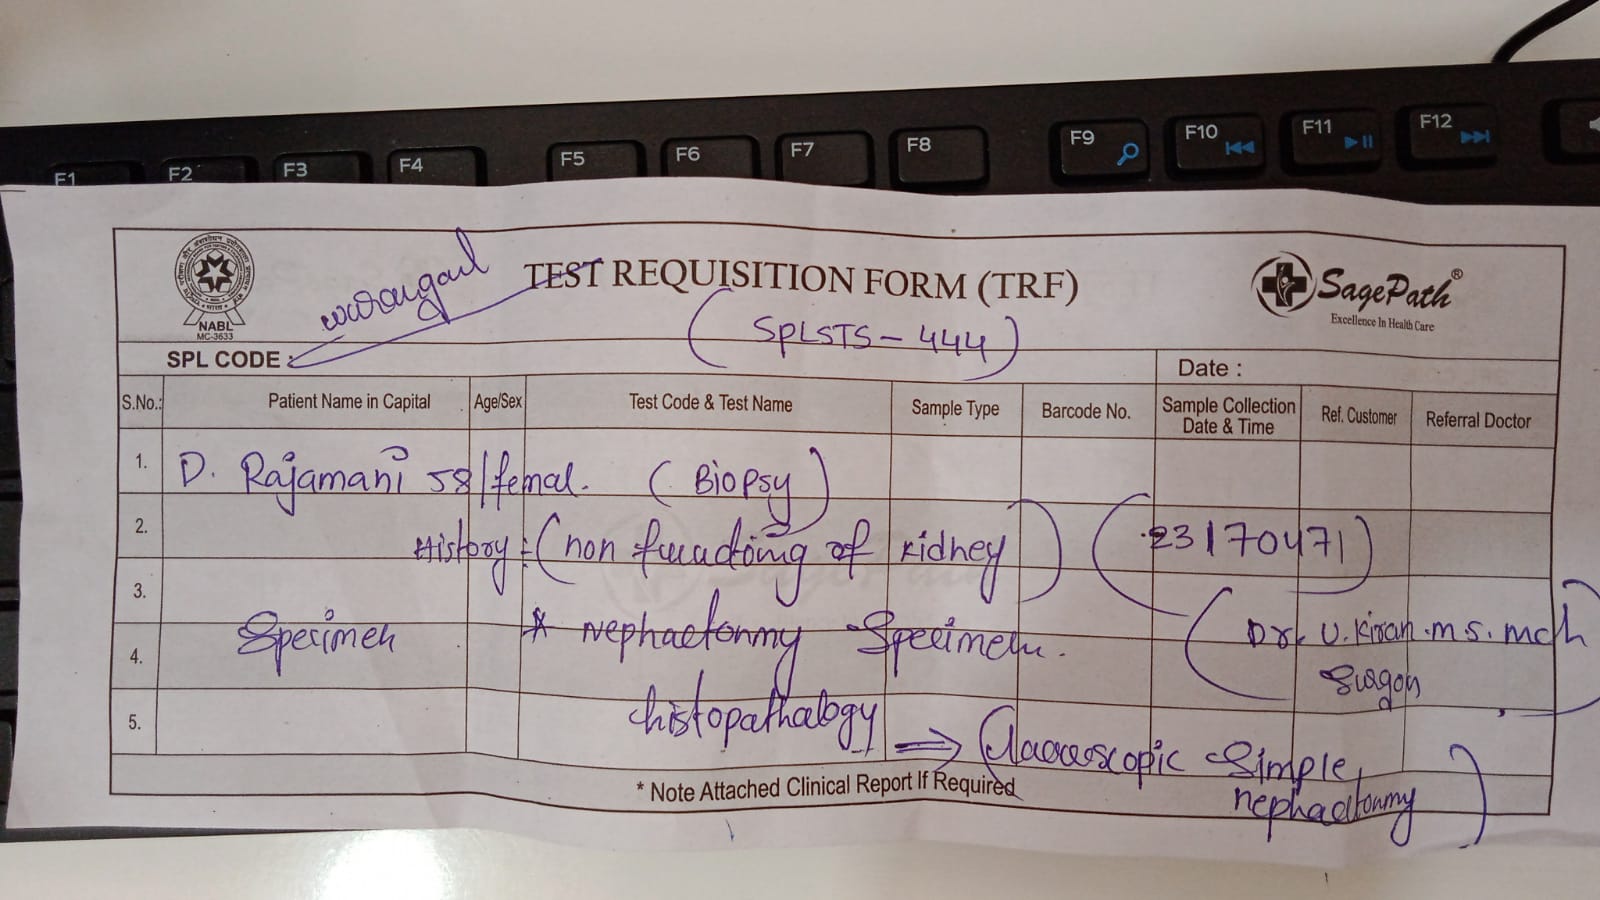 F1 F2 F3 F4 F5 F6 F7 F8 F9 F10 F11 F12
NABL
MC-3633
warangal
TEST REQUISITION FORM (TRF)
(SPLSTS-444)
SagePath®
Excellence In Health Care
SPL CODE :
Date :
S.No.: Patient Name in Capital Age/Sex Test Code & Test Name Sample Type Barcode No. Sample Collection Date & Time Ref. Customer Referral Doctor
1. D. Rajamani 58/femal. (Biopsy)
2. History: (non functoing of kidney) (23170471)
3.
4. Specimen * Nephactonmy Specimen. (Dr. U. Kiran. M.S. Mch
Surgon)
5. histopathalogy ⇒ (Simple,
nephactonmy)
* Note Attached Clinical Report If Required